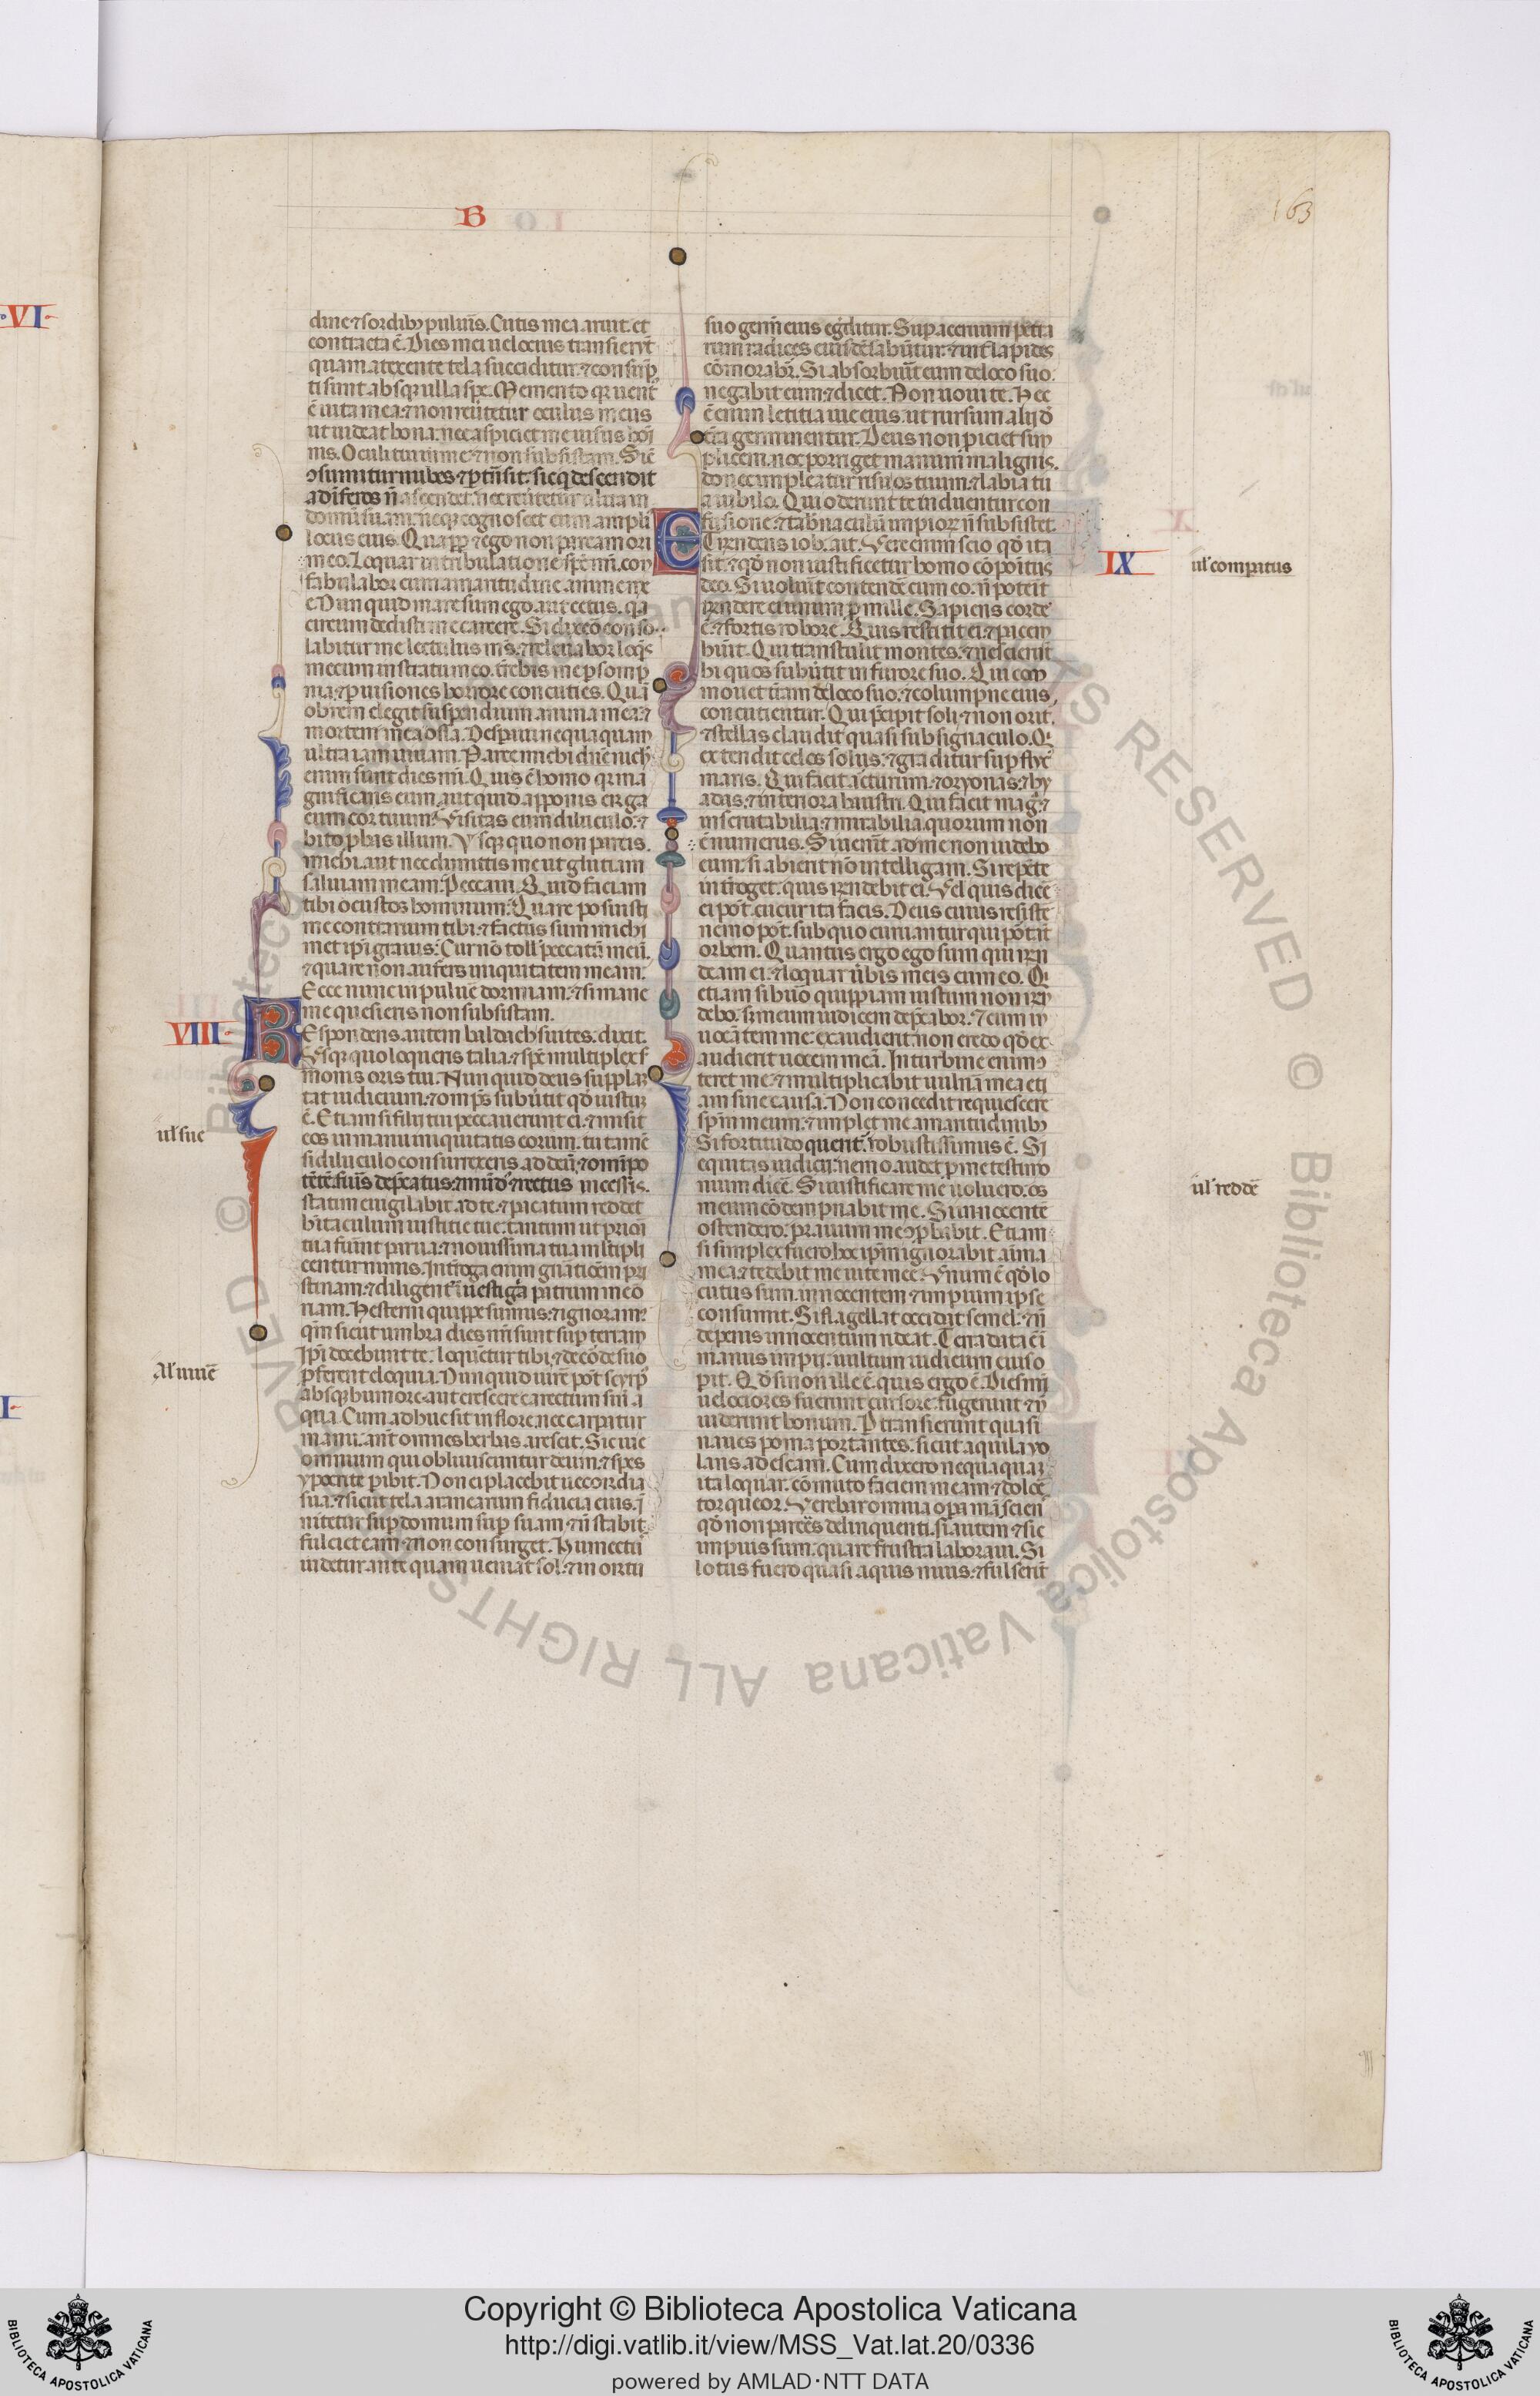 B
163
VI
dine ⁊ sordib; puluis. Cutis mea aruit et
contracta ē. Dies mei uelocius transierūt
quam a texente tela succiditur. ⁊ consūp
ti sunt absq; ulla spe. Memento qr uent᷒
ē uita mea. ⁊ non reūtetur oculus meus
ut uideat bona. nec aspiciet me uisus hoī
nis. Oculi tui in me. ⁊ non subsistam. Sic̄
ↄsumitur nubes ⁊ p̄tn̄sit. sic q̄ descendit
ad īferos n̄ ascendet. nec reūtetur ultra in
domū suam. neq; cognoscet eum ampli᷒
locus eius. Quapp̄ ⁊ ego non parcam ori
meo. Loquar in tribulatione sp̄c mī. con
fabulabor cum amaritudine anime me
e. Nunquid mare sum ego aut cetus. q̄a
circumdedisti me carcere. Si dixeō conso
labitur me lectulus m̄s. ⁊ releuabor loq̄ns
mecum in strato meo. t̄rebis me p somp
nia. ⁊ p uisiones horrore concuties. Quā
obrem elegit suspendium anima mea. ⁊
mortem mea ossa. Desp̄aui nequaquam
ultra iam uiuam. Parce michi dn̄e nich᷒
enim sunt dies mī. Quis ē homo qr ma
gnificans eum. aut quid apponis erga
eum cor tuum. Visitas eum diluculo. ⁊
bito pbas illum. Vsq; quo non parcis
michi. aut nec dimittis me ut glutiam
saliuam meam. Peccaui. Quid faciam
tibi o custos hominum. Quare posuisti
me contrarium tibi. ⁊ factus sum michi
met ip̄i grauis. Cur nō toll᷒ peccatū meū.
⁊ quare non aufers iniquitatem meam.
Ecce nunc in puluē dormiam. ⁊ si mane
me quesieris non subsistam.
VIII
REspondens autem baldach suites. dixit.
Vsq; quo loqueris talia. ⁊ sp̄c multiplex s᷒
monis oris tui. Nunquid deus supplan
tat iudicium. ⁊ omp̄s subūtit qđ iustū
ē. Etiam si filij tui peccauerunt ei. ⁊ misit
ul' sue
eos in manu iniquitatis eorum. tu tamē
si diluculo consurrexeris ad deū. ⁊ omīpo
tētē fūis dep̄catus. ⁊ mūd᷒ ⁊ rectus incesseris.
statim euigilabit ad te. ⁊ picatum reddet
hītaculum iustitie tue. tantum ut priori
tua fūint parua. ⁊ nouissima tua m̄ltipli
centur nimis. Intrōga enim gn̄ationem pri
stinam. ⁊ diligent᷒ īuestiga patrum meō
riam. Hesterni quippe sumus. ⁊ ignoram᷒
qm̄ sicut umbra dies nr̄i sunt sup terram
Al' uiuē
Ip̄i docebunt te. loquētur tibi. ⁊ de cōde suo
pferent eloquia. Nunquid uirē pōt scyrp᷒
absq; humore. aut crescere carectum sine a
qua. Cum adhuc sit in flore. nec carpatur
manu. ante omnes herbas arescit. Sic uie
omnium qui obliuiscuntur deum. ⁊ spes
ypocrite pibit. Non ei placebit uecordia
sua. ⁊ sicut tela aranearum fiducia eius. ī
nitetur sup domum sup suam. ⁊ n̄ stabit.
fulciet eam. ⁊ non consurget. Humectus
uidetur antequam ueniat sol. ⁊ in ortu
suo germē eius egredietur. Sup aceruum petra
rum radices eius dēsabūtur. ⁊ int᷒ lapides
cōmorabr̄. Si absorbuīt eum de loco suo.
negabit eum. ⁊ dicet. Non noui te. Hec
ē enim letitia uie eius. ut rursum alij dē
t̄ra germinentur. Deus non piciet sim
plicem. nec porriget manum malignis.
donec impleatur risu os tuum. ⁊ labia tu
a iubilo. Qui oderunt te induentur con
fusione. ⁊ tab̄naculū impiorū n̄ subsistet.
IX
ETrn̄dens iob. ait. Vere enim scio qđ ita
ul' comparatus
sit. ⁊ qđ non iustificetur homo cōpoitus
deo. Si uoluīt contendē cum eo. n̄ poterit
rn̄dere ei unum p mille. Sapiens corde
ē. ⁊ fortis robore. Quis restitit ei. ⁊ pacem
huīt. Qui transtulit montes. ⁊ nescierūt
hi quos subūtit in furore suo. Qui com
mouet t̄ram de loco suo. ⁊ columpne eius
concutientur. Qui p̄cipit soli. ⁊ non orit᷒.
⁊ stellas claudit quasi sub signaculo. Q᷒
extendit celos solus. ⁊ graditur sup flꝯ
maris. Qui facit arcturum. ⁊ oryonas. ⁊ hy
adas. ⁊ interiora haustri. Qui facit mag. ⁊
inscrutabilia. ⁊ mirabilia. quorum non
ē numerus. Si uenīt ad me non uidebo
eum. si abierit nō intelligam. Si rep̄te
intrōget. quis rn̄debit ei. Vel quis dicē
ei pōt. cur ita facis. Deus cuius resistē
nemo pōt. sub quo curuantur qui pōtāt
orbem. Quantus ergo ego sum qui rn̄
deam ei. ⁊ loquar ūbis meis cum eo. Q᷒
etiam si hūo quippiam iustum non rn̄
debo. sꝫ meum iudicem dep̄cabor. ⁊ cum in
uocātem me exaudierit. non credo qđ ex
audierit uocem meā. In turbine enim ↄ
teret me. ⁊ multiplicabit uulna mea eti
am sine causa. Non concedit requiescere
sp̄m meum. ⁊ implet me amaritudinib;
Si fortitudo querit᷒. robustissimus ē. Si
equitas iudicij. nemo audet p me testimo
ul' reddē
nium dicē. Si iustificare me uoluero. os
meum cōdempnabit me. Si innocentē
ostendero. prauum me ↄpbabit. Etiam
si simplex fuero. hoc ip̄m ignorabit aīma
mea. ⁊ tedebit me uite mee. Vnum ē qđ lo
cutus sum. innocentem ⁊ impium ipse
consumit. Si flagellat occidat semel. ⁊ n̄
de penis innocentum rideat. Terra data ē ī
manus impij. uultum iudicum eius o
pit. Qđ si non ille ē. quis ergo ē. Dies mī
uelociores fuerunt cursore. fugerunt ⁊ n̄
uiderunt bonum. Ptransierunt quasi
naues poma portantes. sicut aquila uo
lans ad escam. Cum dixero nequaquam
ita loquar. cōmuto faciem meam ⁊ dolor̄e
torqueor. Verebar omnia op̄a m̄a sciens
qđ non parceres delinquenti. si autem ⁊ sic
impius sum. quare frustra laboraui. Si
lotus fuero quasi aquis niuis. ⁊ fulserīt
Copyright © Biblioteca Apostolica Vaticana
http://digi.vatlib.it/view/MSS_Vat.lat.20/0336
powered by AMLAD·NTT DATA
BIBLIOTECA APOSTOLICA VATICANA
BIBLIOTECA APOSTOLICA VATICANA